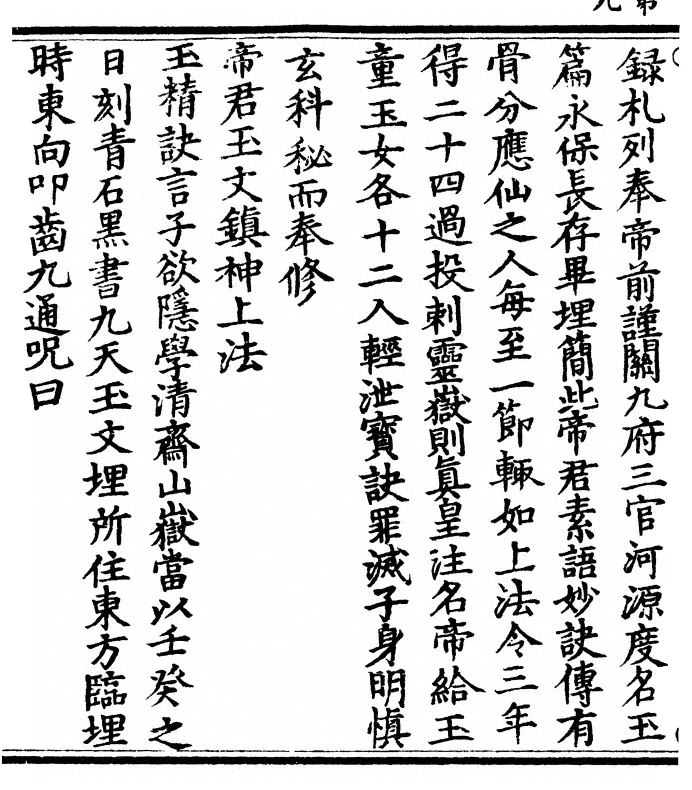 録札列奉帝前謹關九府三官河源度名玉
篇永保長存畢埋簡此帝君素語妙訣傳有
骨分應仙之人每至一節輙如上法令三年
得二十四過投刺靈嶽則眞皇注名帝給玉
童玉女各十二人輕泄寶訣罪滅子身明慎
玄科秘而奉修
帝君玉文鎮神上法
玉精訣言子欲隱學清齋山嶽當以壬癸之
日刻青石黑書九天玉文埋所住東方臨埋
時東向叩齒九通呪曰